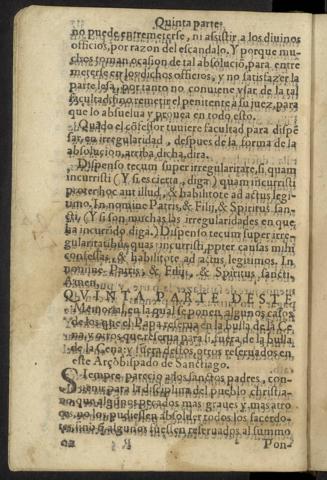 Quinta parte.
no puede entremeterse, ni assistir a los diuinos
officios, por razon del escandalo. Y porque mu-
ches toman ocasion de tal absolució, para entre
meterse en los dichos officios, y no satisfazer la
parte lesa, por tanto no conuiene vsar de la tal
facultad sino remetir el penitente a su juez, para
que lo absuelua y prouea en todo esto.
Quãdo el cófessor tuuiere facultad para dispẽ
sar en irregularidad, despues de la forma de la
absolucion, arriba dicha, dira.
Dispenso tecum super irregularitate, si quam
incurristi (Y si es cierta, diga) quam incurristi
propter hoc aut illud, & habilito te ad actus legi-
timo. In nomine Patris, & Filij, & Spiritus san-
cti, (Y si son muchas las irregularidades en que
ha incurrido diga.) Dispenso tecum super irre-
gularitatibus quas incurristi, ppter causas mihi
confessas, & habilito te ad actus legitimos. In
nomine Patris, & Filij, & Spiritus sancti.
Amen.
QVINTA PARTE DESTE
Memorial, en la qual se ponen algunos casos
de los que el Papa reserua en la bulla de la Ce
na, y otros que reserua para si, fuera de la bulla
de la Cena: y fuera destos, otros reseruados en
este Arçobispado de Sanctiago.
SIempre parecio a los sanctos padres, con-
uenir para la disciplina del pueblo christia-
no que algunos pecados mas graues y mas atro
ces, no los pudiessen absoluer todos los sacerdo-
tes, sino q̃ algunos fuessen reseruados al summo
Pon-